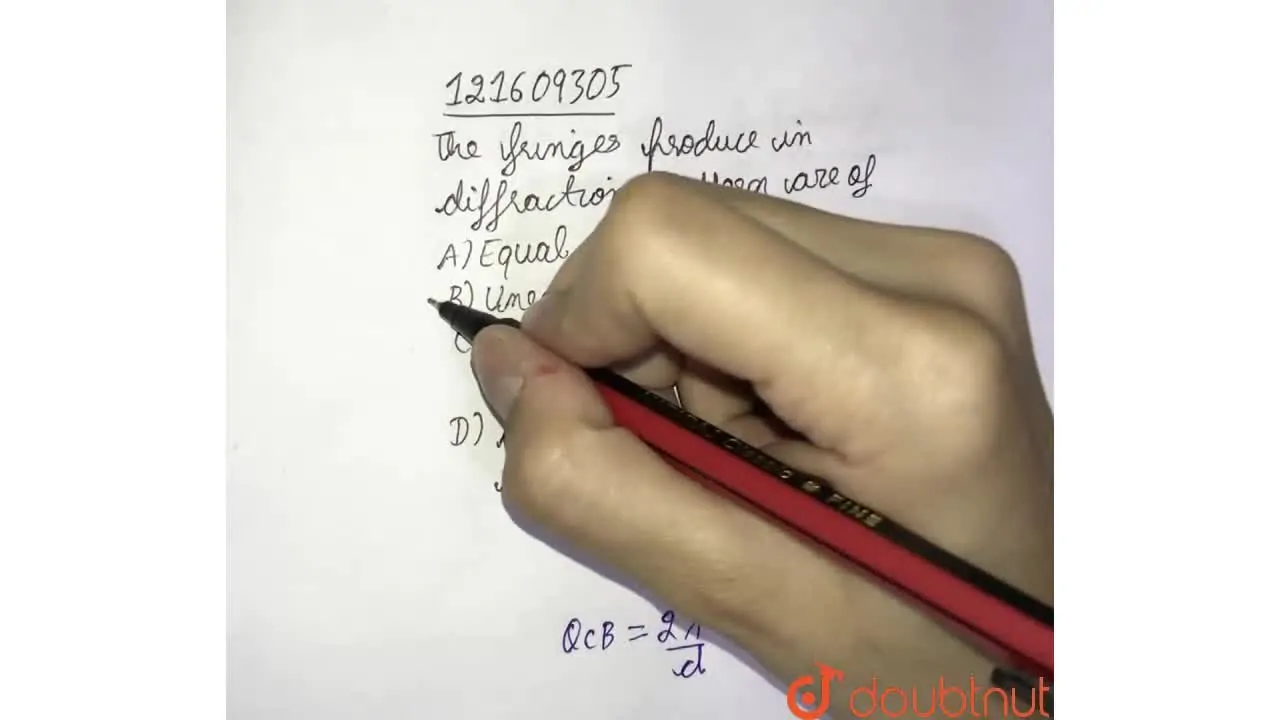 121609305
The fringes produce in
diffraction are of
A) Equal
B)
C
D)
QcB = 2λ/d
doubtnut